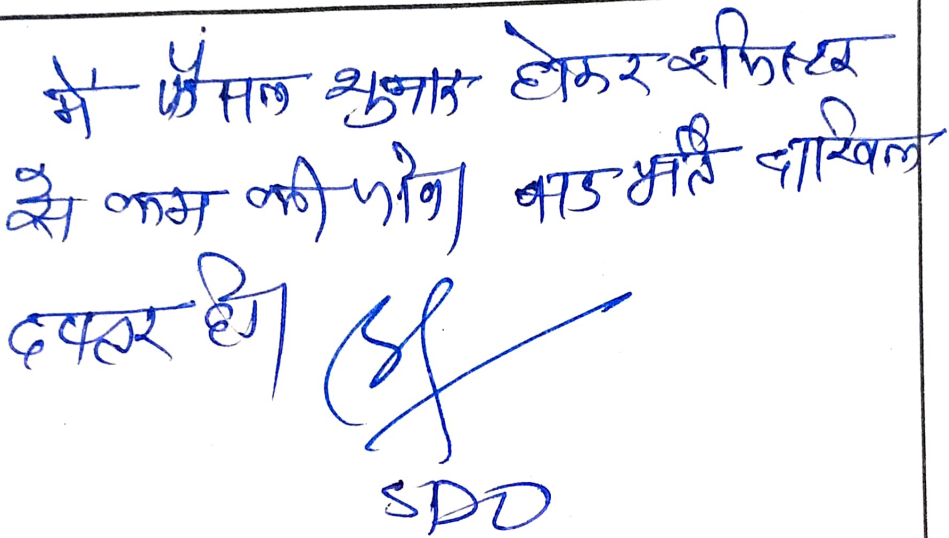 में फैसल शुमार होकर रजिस्टर
से कम की जावे। बाद भर्ति दाखिल
दफ्तर हो।
SDO